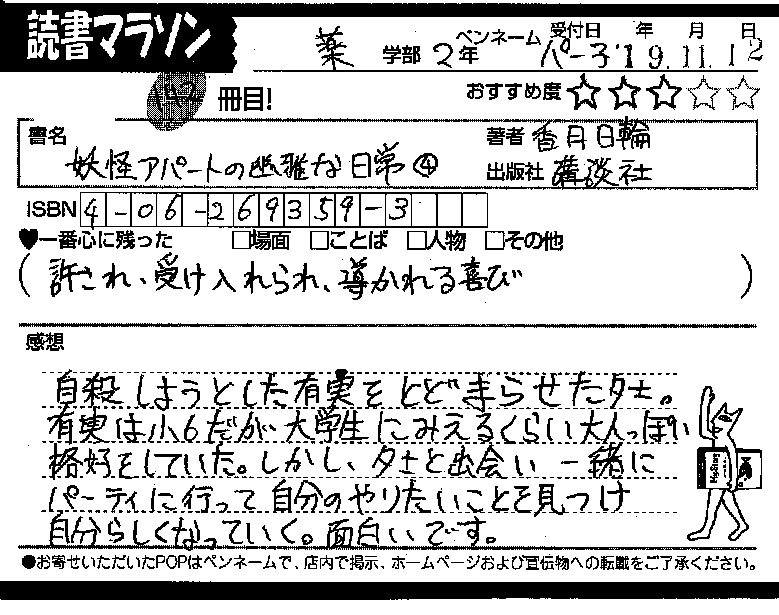 読書マラソン
受付日 年 月 日
薬 学部 2年 ペンネーム パーヌ '19.11.12
142 冊目! おすすめ度 ☆☆☆☆☆
書名 著者 香月日輪
妖怪アパートの幽雅な日常④ 出版社 講談社
ISBN 4-06-269359-3
♥一番心に残った □場面 □ことば □人物 □その他
(許され、受け入れられ、導かれる喜び)
感想
自殺しようとした有実をとどまらせた夕士。
有実は小6だが大学生にみえるくらい大人っぽい
格好をしていた。しかし、夕士と出会い一緒に
パーティに行って自分のやりたいことを見つけ
自分らしくなっていく。面白いです。
●お寄せいただいたPOPはペンネームで、店内で掲示、ホームページおよび宣伝物への転載をご了承ください。